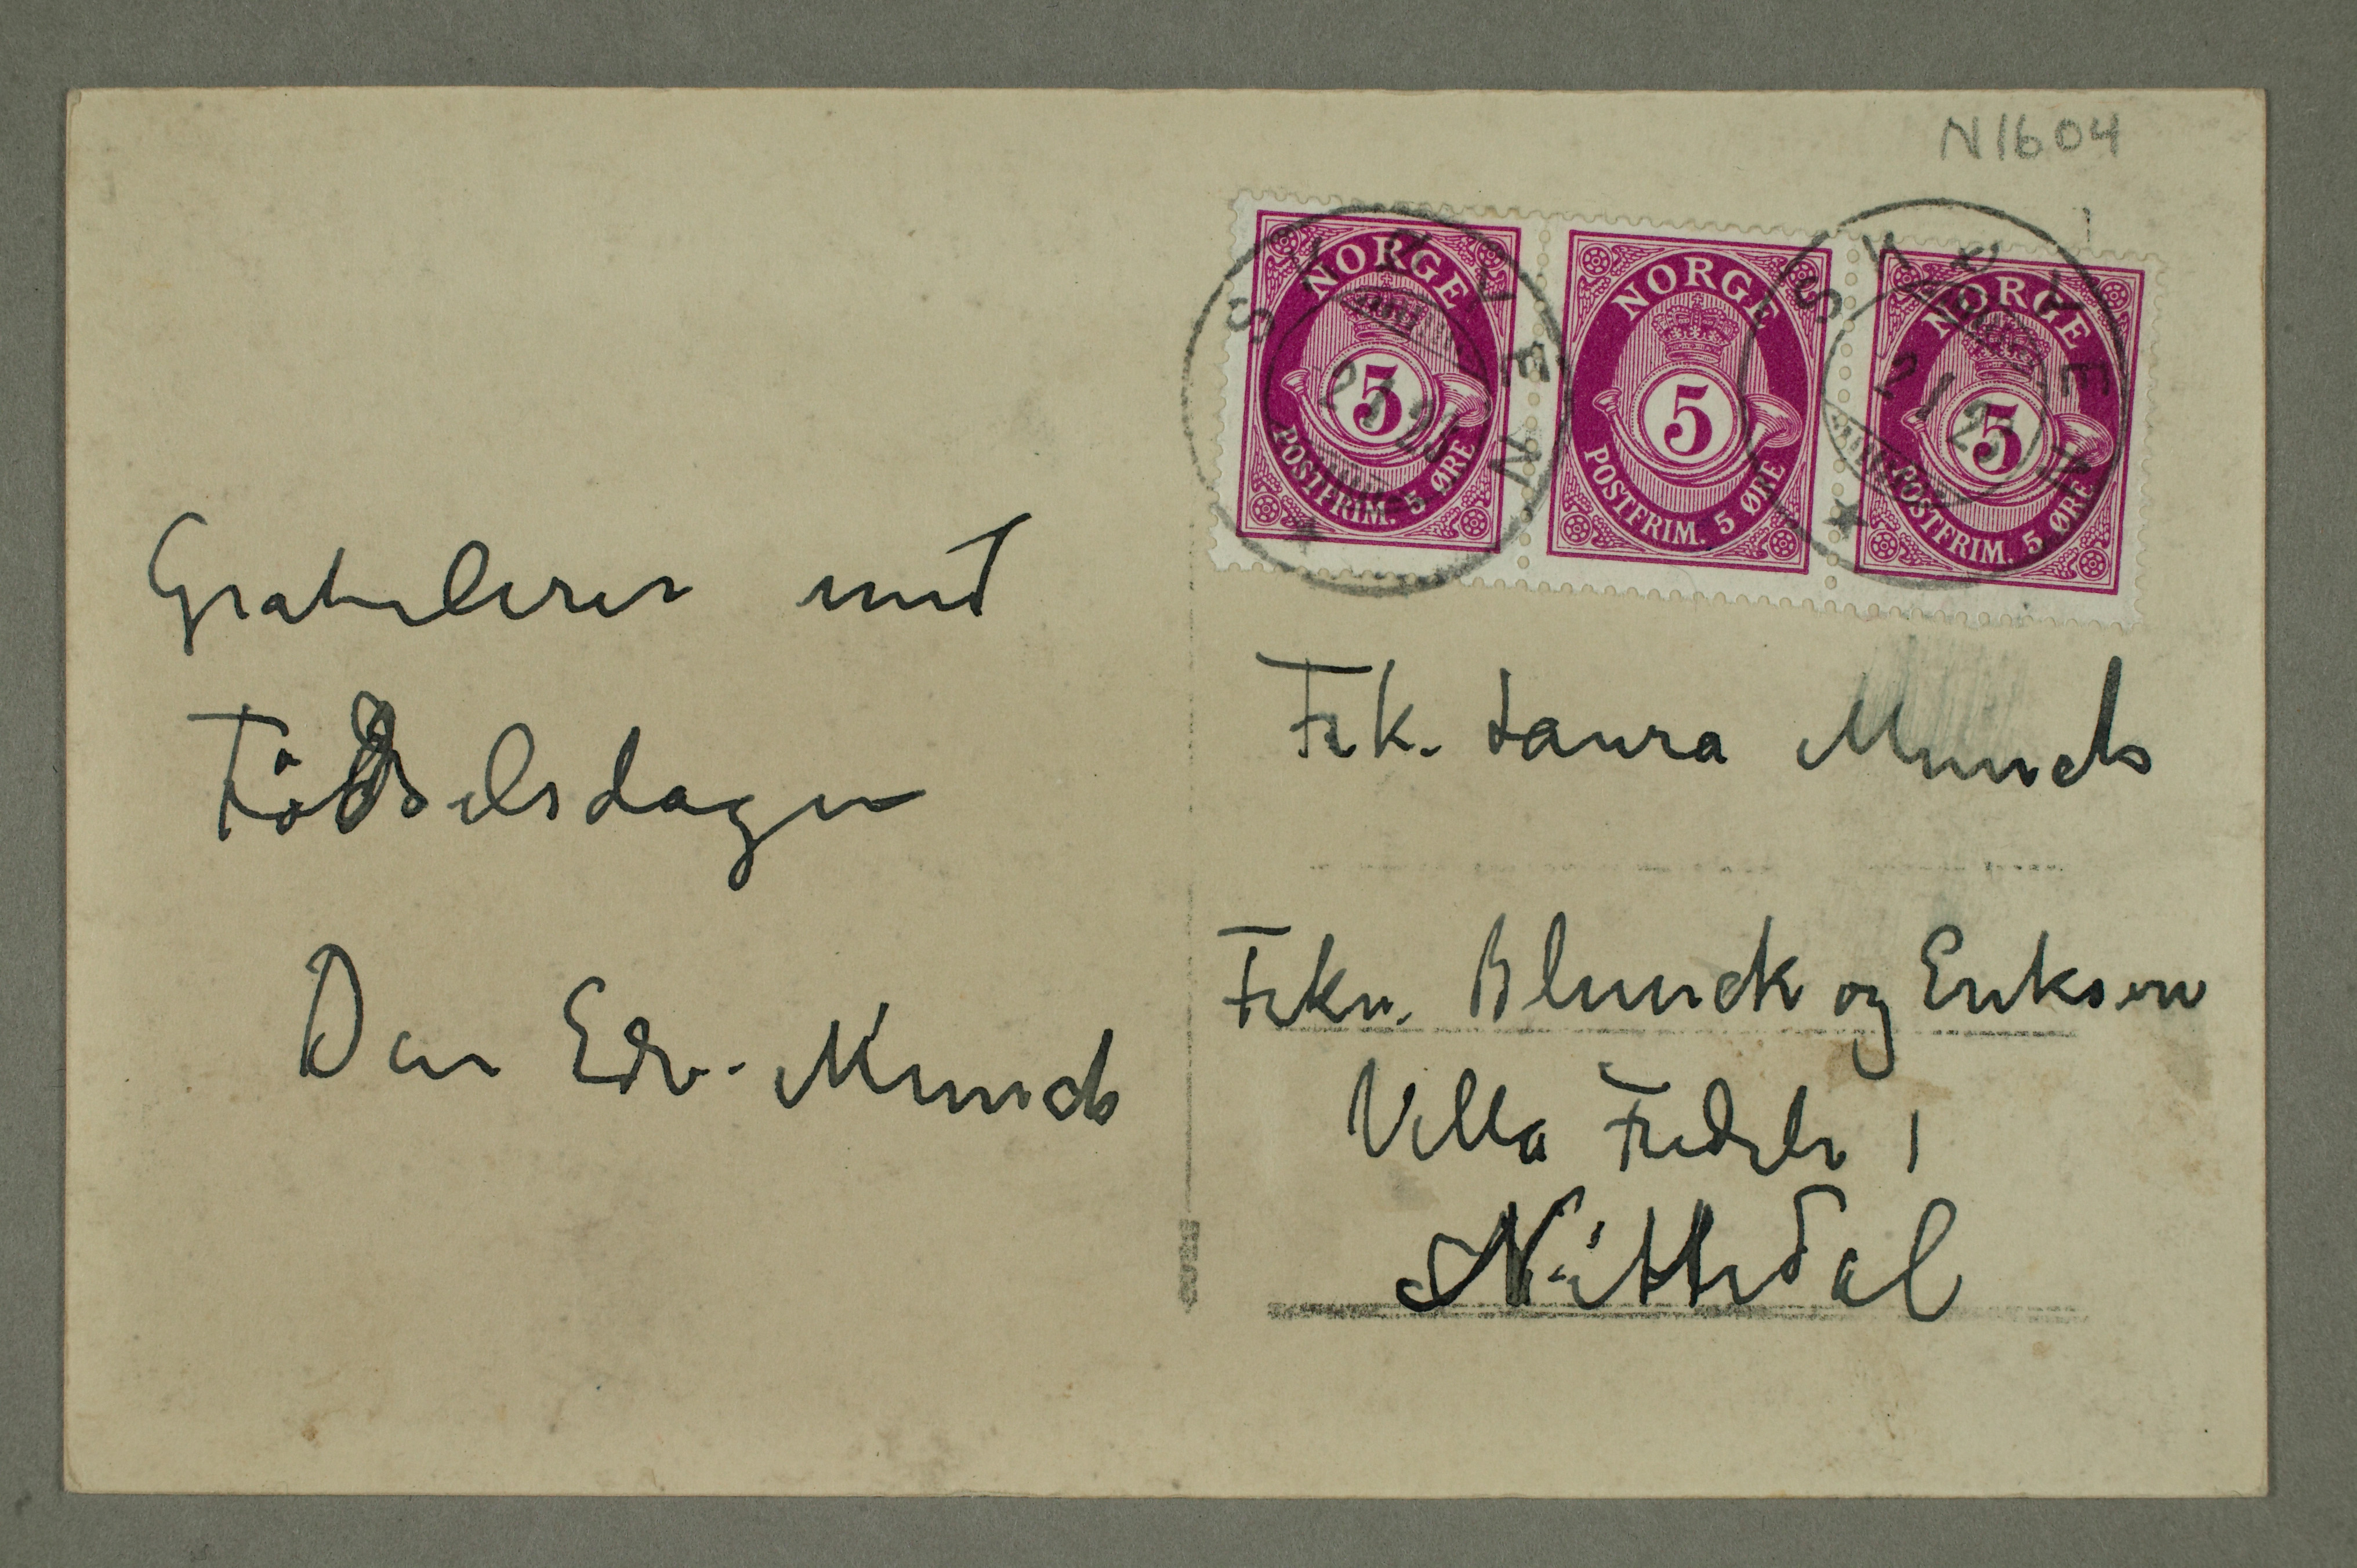 N1604
NORGE
5
POSTFRIM. 5 ØRE
NORGE
5
POSTFRIM. 5 ØRE
NORGE
5
POSTFRIM. 5 ØRE
SKØYEN
SKØYEN
Gratulerer med
Födselsdagen
Din Edv. Munch
Frk. Laura Munch
Frkn. Blunck og Eriksen
Villa
Nittedal